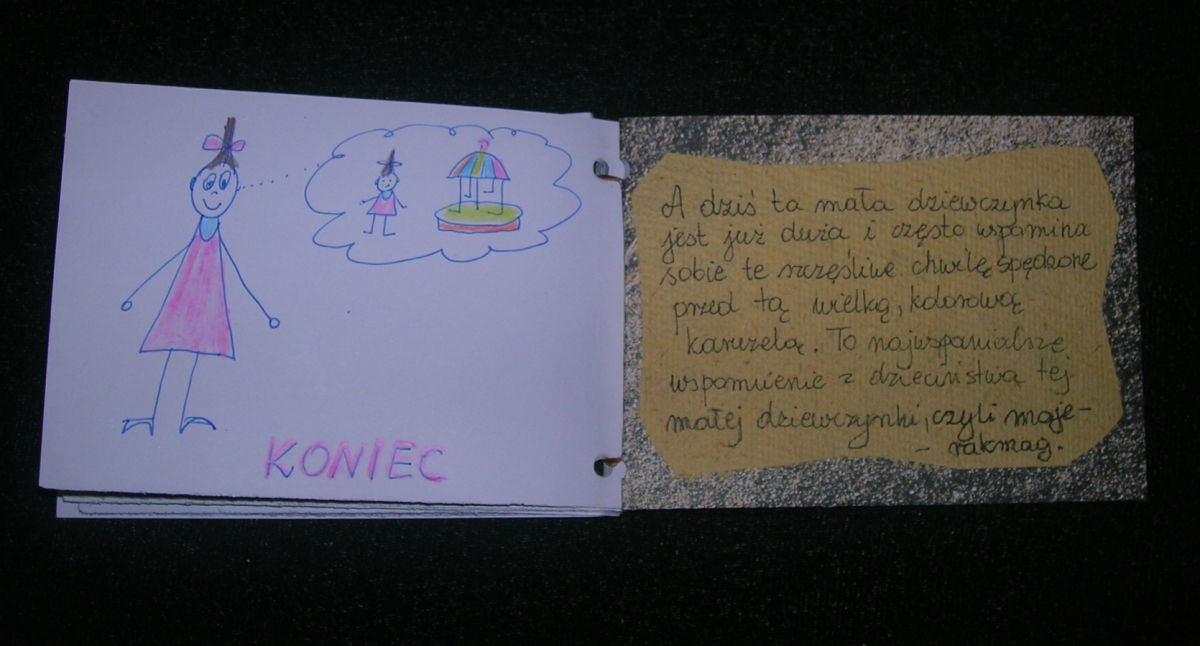 KONIEC
A dziś ta mała dziewczynka
jest już duża i często wspomina
sobie te szczęśliwe chwilę spędzone
przed tą wielką, kolorową
karuzelą. To najwspanialsze
wspomnienie z dzieciństwa tej
małej dziewczynki, czyli moje-
- rakmag.